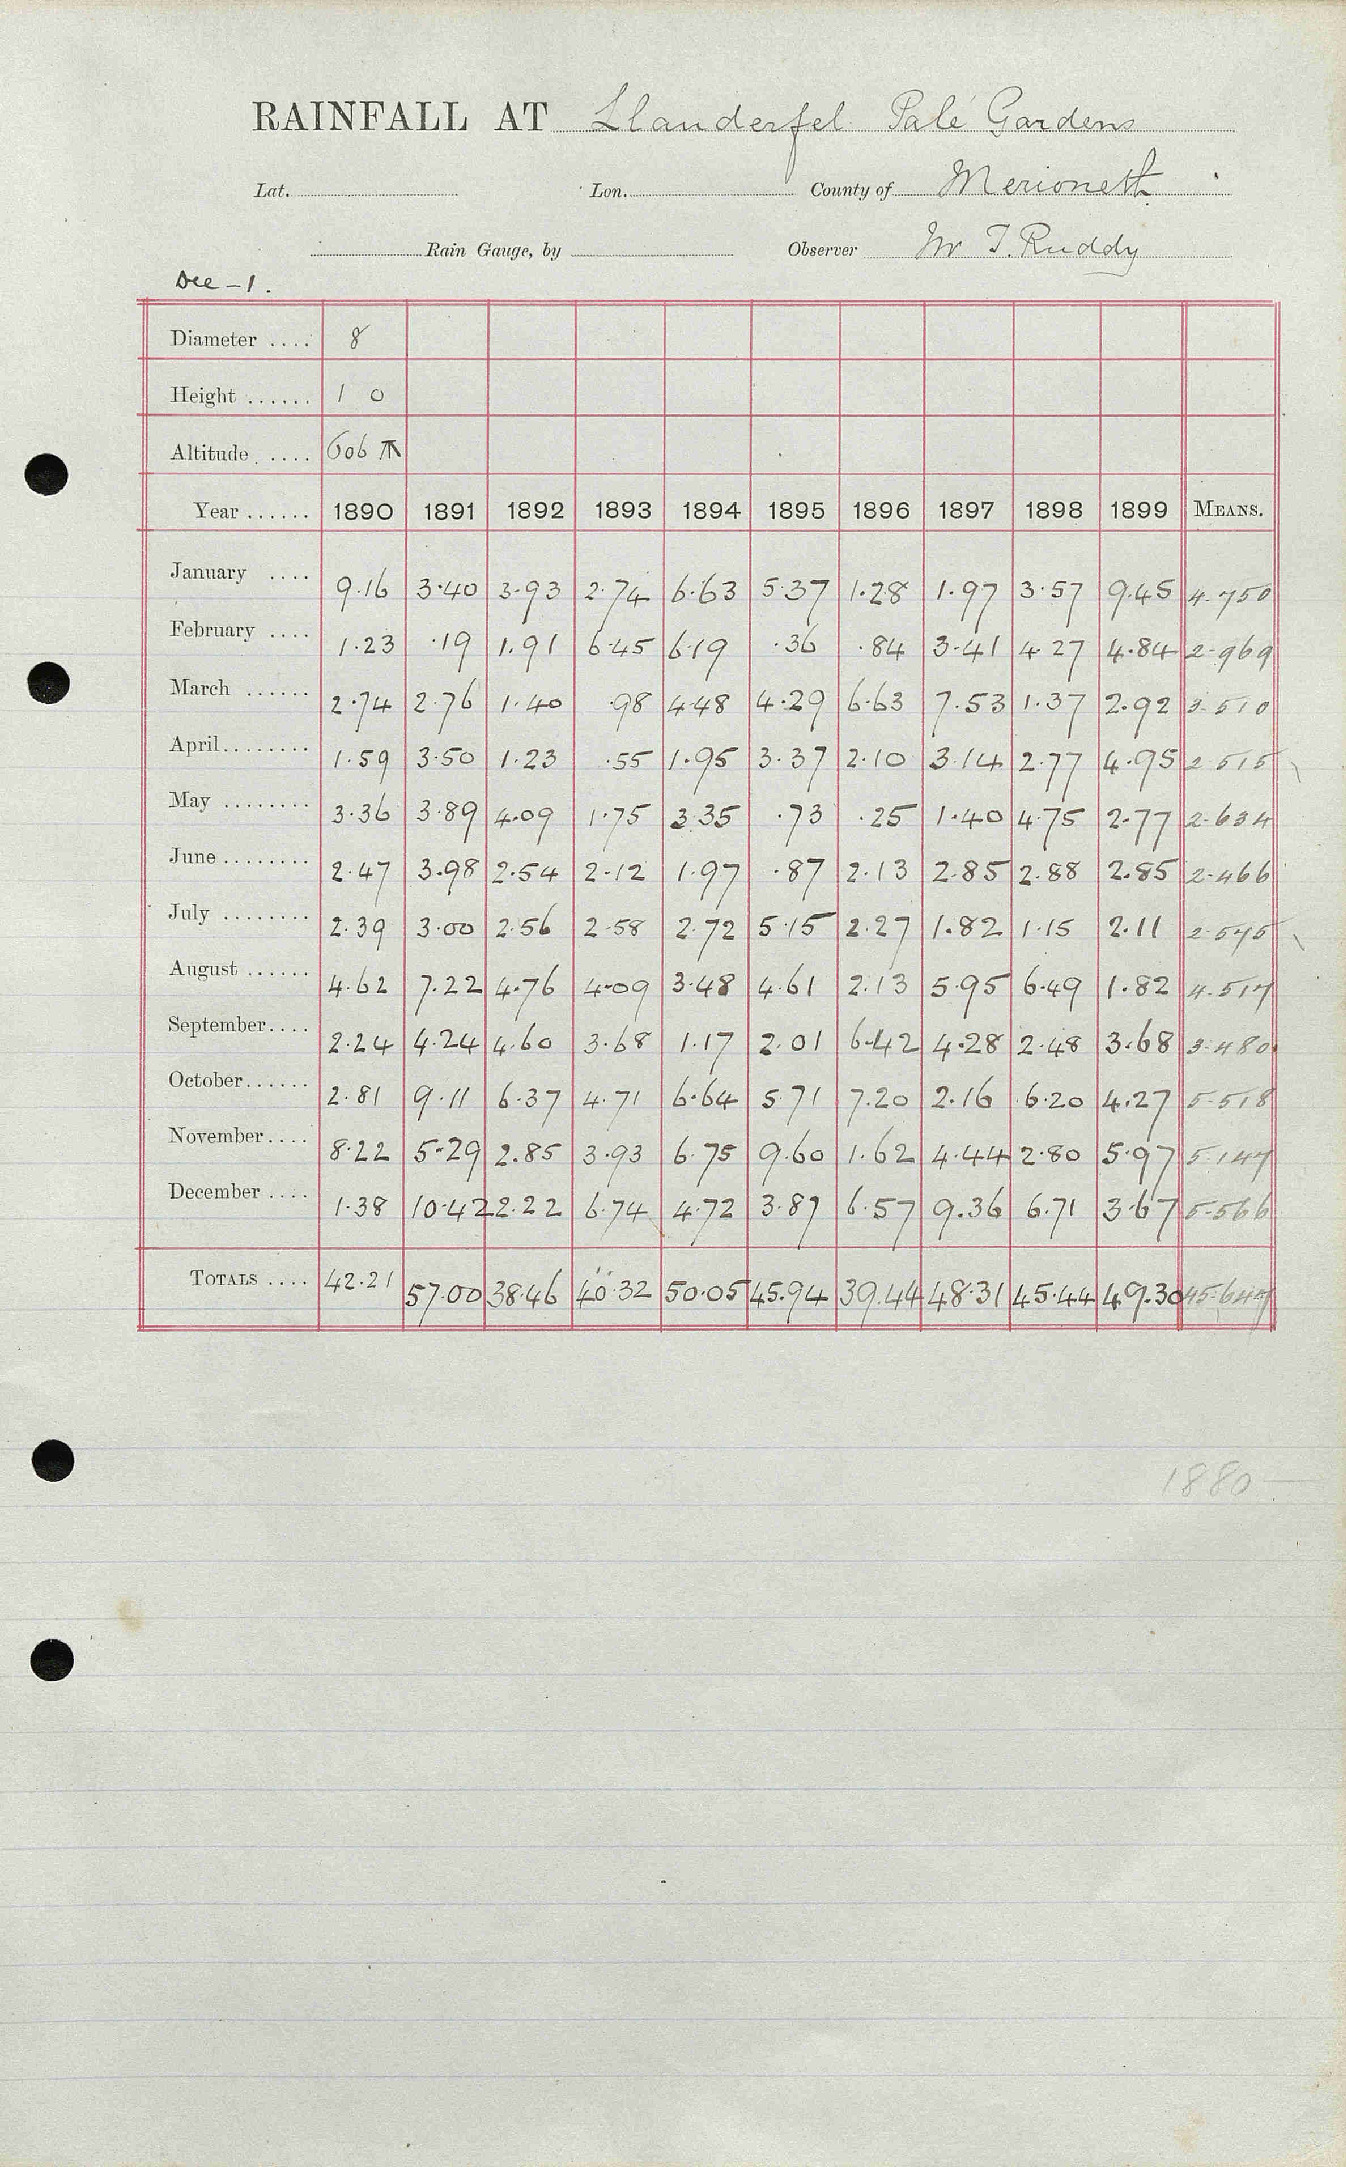 RAINFALL AT Llanderfel Palé Gardens
Lat. Lon. County of Merioneth
Rain Gauge, by Observer Mr T. Ruddy
Dee - 1.
Diameter .... 8
Height ...... 1 0
Altitude ..... 606
Year ...... 1890 1891 1892 1893 1894 1895 1896 1897 1898 1899 MEANS.
January .... 9.16 3.40 3.93 2.74 6.63 5.37 1.28 1.97 3.57 9.45 4.750
February .... 1.23 .19 1.91 6.45 6.19 .36 .84 3.41 4.27 4.84 2.969
March ...... 2.74 2.76 1.40 .98 4.48 4.29 6.63 7.53 1.37 2.92 3.510
April........ 1.59 3.50 1.23 .55 1.95 3.37 2.10 3.14 2.77 4.95 2.515
May ........ 3.36 3.89 4.09 1.75 3.35 .73 .25 1.40 4.75 2.77 2.634
June ........ 2.47 3.98 2.54 2.12 1.97 .87 2.13 2.85 2.88 2.85 2.466
July ........ 2.39 3.00 2.56 2.58 2.72 5.15 2.27 1.82 1.15 2.11 2.575
August ...... 4.62 7.22 4.76 4.09 3.48 4.61 2.13 5.95 6.49 1.82 4.517
September.... 2.24 4.24 4.60 3.68 1.17 2.01 6.42 4.28 2.48 3.68 3.480
October...... 2.81 9.11 6.37 4.71 6.64 5.71 7.20 2.16 6.20 4.27 5.518
November.... 8.22 5.29 2.85 3.93 6.75 9.60 1.62 4.44 2.80 5.97 5.147
December .... 1.38 10.42 2.22 6.74 4.72 3.87 6.57 9.36 6.71 3.67 5.566
TOTALS .... 42.21 57.00 38.46 40.32 50.05 45.94 39.44 48.31 45.44 49.30 45.647
1880 —